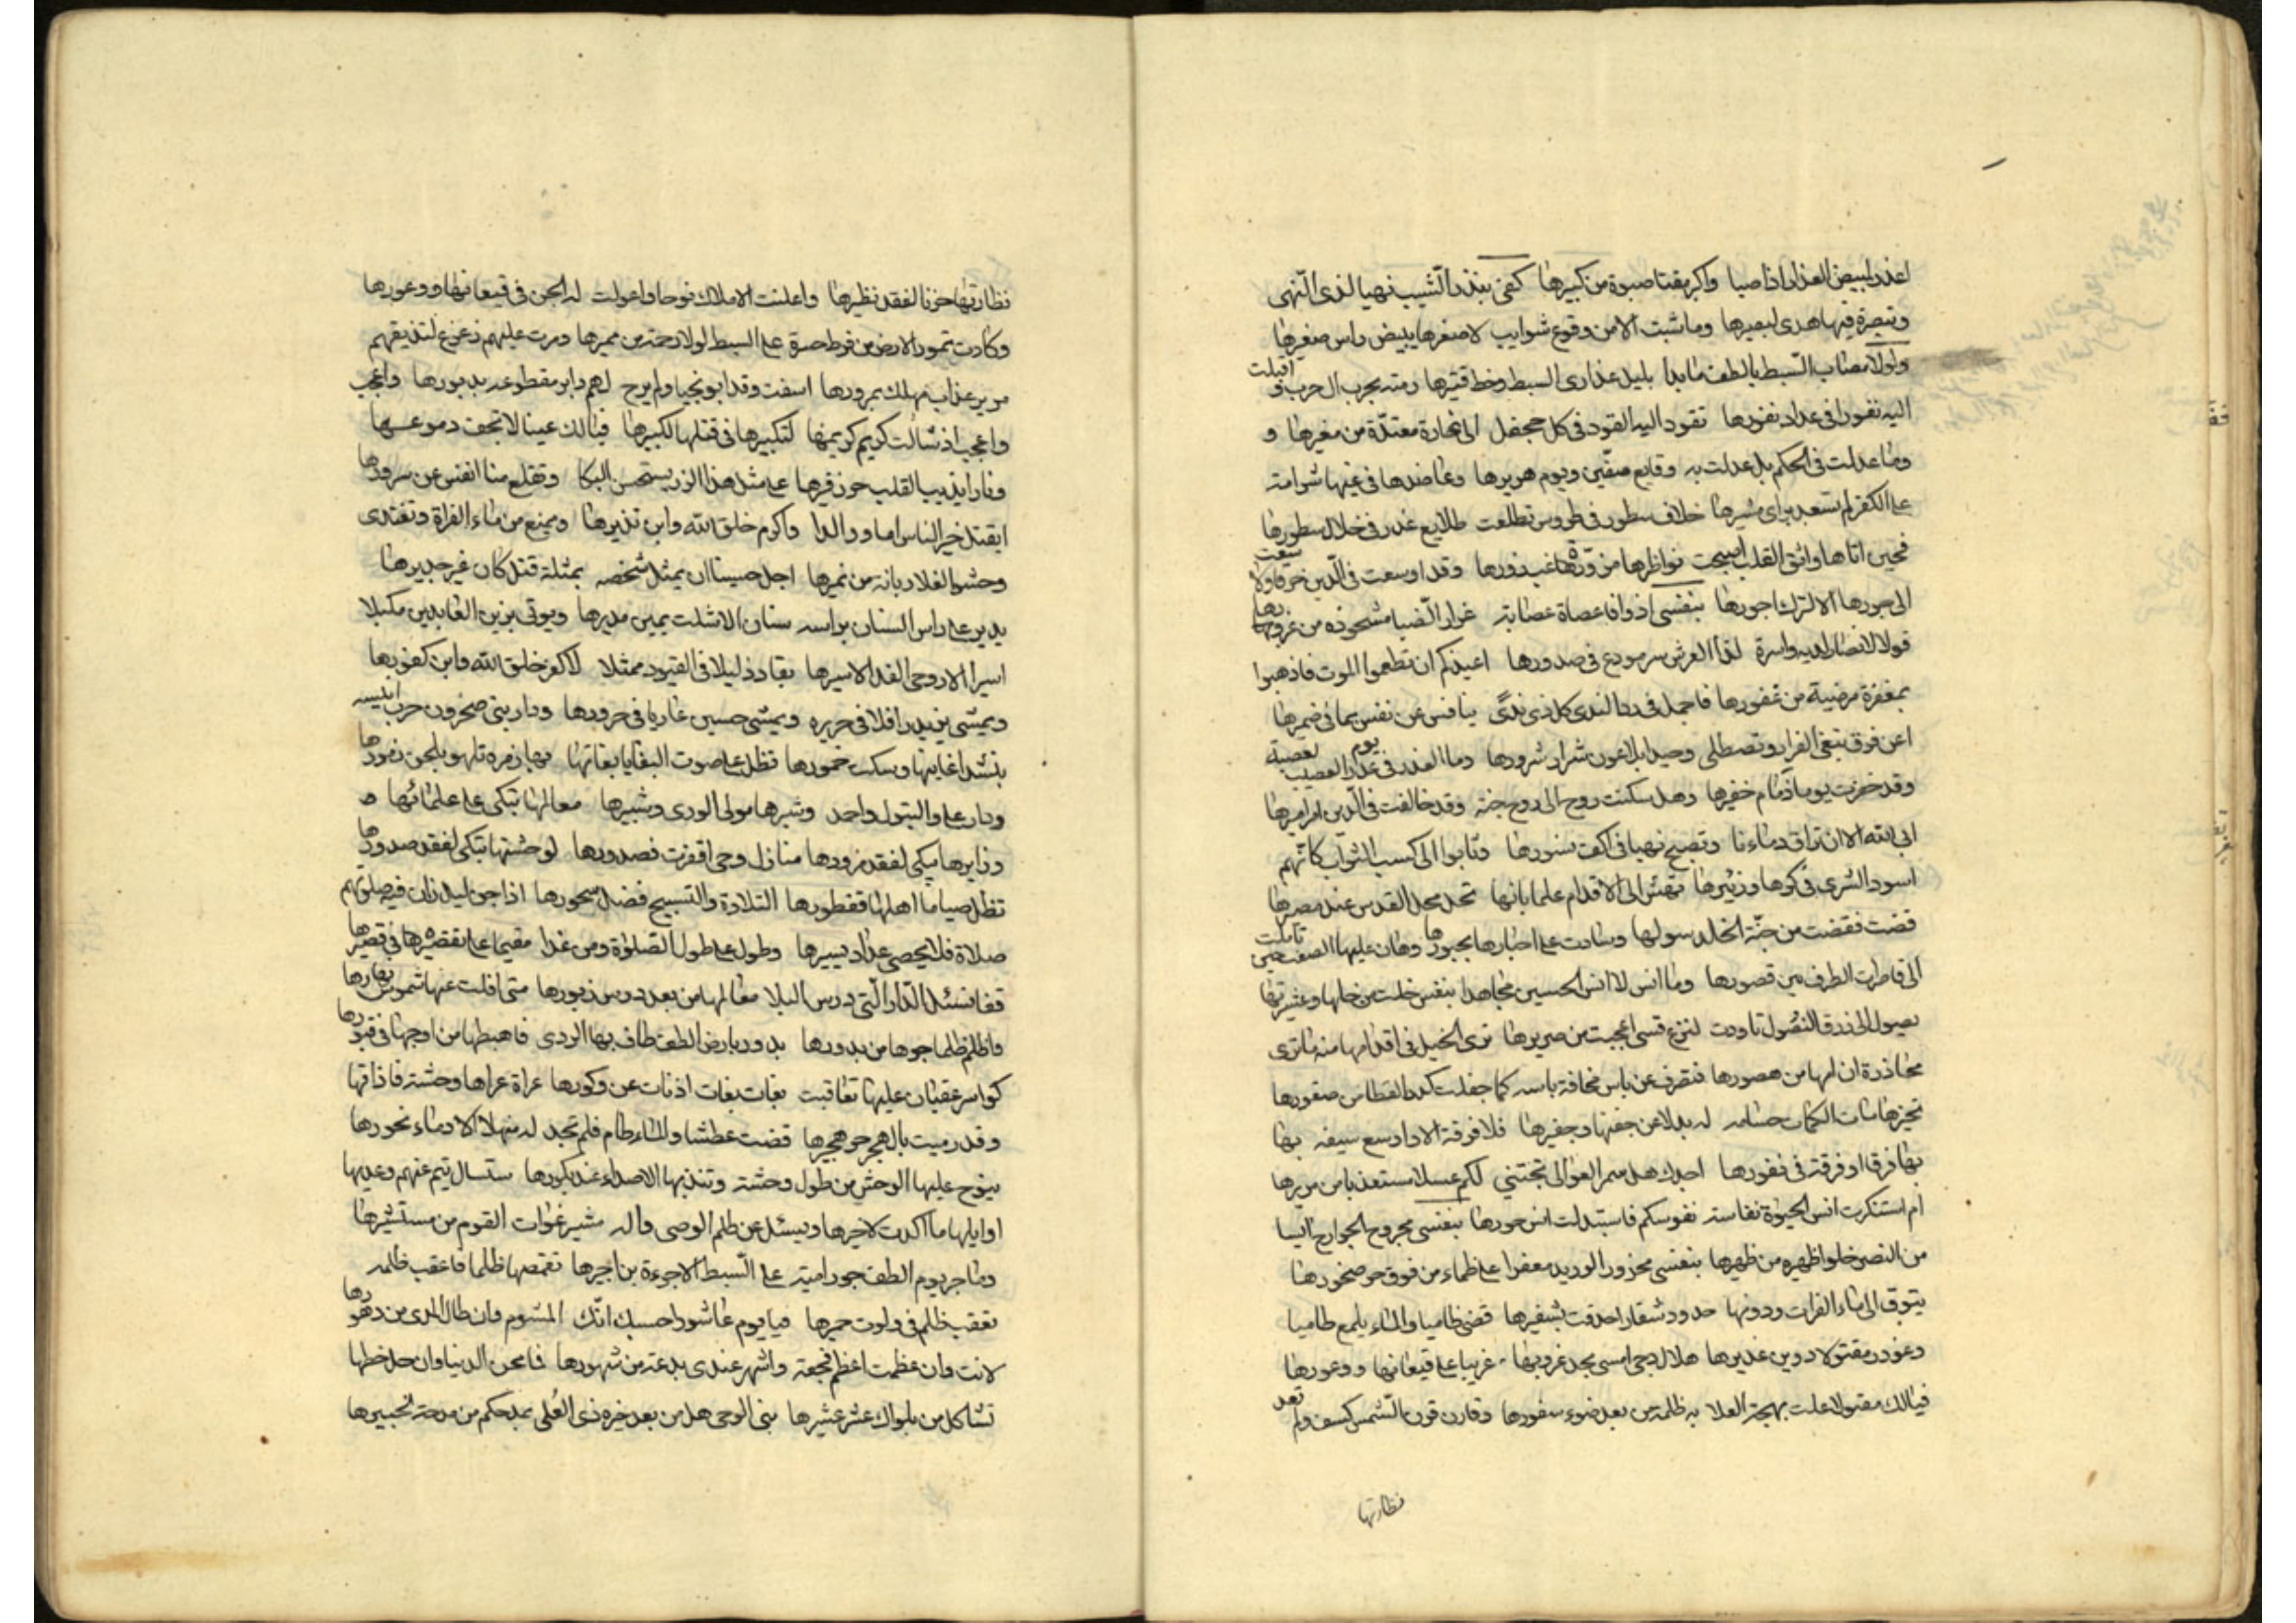 اعذر لبيض العذار اذا صبا واكبر مقتا صبوة من كبيرها كفى بنذر الشيب نهيا لذى النهى
وتبصرة فيها هدى لبصيرها وما شبت الا من وقوع شوايب لاصغرها يبيض راس صغيرها
ولولا مصاب السبط بالطف ما بدا بليل عذارى السبط وخط قتيرها رمته بحرب ال حرب و اقبلت
اليه نفورا فى عداد نفورها تقود اليه القود فى كل جحفل الى غارة معتدة من مغيرها و
وما عدلت فى الحكم بل عدلت به وقايع صفين ويوم هريرها وعاضدها فى غيها شوامته
على الكفر لم تسعد براى مشيرها خلاف سطور فى طروس تطلعت طلايع غدر فى خلال سطورها
فحين اتاها واثق القلب اصبحت نواظرها مزورة غب زورها وقد اوسعت فى الدين خرقا ولا سعت
الى جورها الا لترك اجورها بنفسى اذ وافا عصاة عصابة غرار الضبا مشحوذه من غرورها
قولا لانصار لديه واسرة لذا العرش سر مودع فى صدورها اعيذكم ان تطعموا الموت فاذهبوا
بمغفرة مرضية من غفورها فاجمل فى رد الندى كل ذى ندى ينافس عن نفس بما فى ضميرها
اعن فرق نبغى الفرار وتصطلى وحيدا بلا عون شرار شرورها وما العذر فى يوم العصيب لعصبة
وقد خفرت يوما ذمام خفيرها وهل سكنت روح الى روح جنة وقد خالفت فى الدين امر اميرها
ابى الله الا ان تراق دماءنا وتصبح نهبا فى اكف نسورها وثابوا الى كسب الثواب كانهم
اسود الشرى فى كرها وزئيرها تهش الى الاقدام علما بانها تحل محل القدس عند مصيرها
قضت فقضت من جنة الخلد سولها وسادت على احبارها بحبورها وهان عليها الصعب حين تاملت
الى قاصرات الطرف بين قصورها وما انس لا انس الحسين مجاهدا بنفس خلت من خلها وعشيرتها
يصول الى زرق النصول تاودت لنزع قسى اعجبت من صريرها ترى الخيل فى اقدامها منه ما ترى
محاذرة ان امها من هصورها فتصرف عن باس مخافة باسه كما جفلت كدر القطا من صقورها
حسامه له بدلا عن جفنها وجفيرها فلا فرقة الا واوسع سيفه بها
بها فرقا او فرقة فى نفورها اجدك هل سمر العوالى تجتنى لكم عسلا مستعذبا من مريرها
ام استنكرت انس الحيوة نفاسة نفوسكم فاستبدلت انس حورها بنفسى مجروح الجوارح آيسا
من النصر خلوا ظهيره من ظهيرها بنفسى محزوز الوريد معفرا على ظماء من فوق حر صخورها
يتوق الى ماء الفرات ودونها حدود شفار احدقت بشفيرها قضى ظاميا والماء يلمع طاميا
وغودر مقتولا دوين غديرها هلال دجى امسى بحد غروبها غريبا على قيعانها ووعورها
فيالك مقتولا علت بهجة العلا به ظلمة من بعد ضوء سفورها وقارن قرن الشمس كسف ولم تعد
نظارتها
نظارتها حزنا لفقد نظيرها واعلنت الاملاك نوحا واعولت له الجن فى قيعانها ووعورها
وكادت تمور الارض من فرط حسرة على السبط لولا رحمة من مميرها ومرت عليهم زعزع لتذيقهم
مرير عذاب مهلك بمرورها اسفت وقد ابو نجيا ولم يرح لهم دابر مقطوعه بدبورها واعجب
واعجب اذ شالت كريم كريمها لتكبيرها فى قتلها لكبيرها فيالك عينا لا تجف دموعها
ونارا يذيب القلب حر زفيرها على مثل هذا الرزء يستحسن البكا وتقلع منا انفس عن سرورها
ايقتل خير الناس اما ووالدا واكرم خلق الله وابن نذيرها ويمنع من ماء الفراة وتغتدى
وحشو الفلا ريانة من نميرها اجل حسينا ان يمثل شخصه بمثلة قتل كان غير جديرها
يدير على راس السنان براسه سنان الا شلت يمين مديرها ويوتى بزين العابدين مكبلا
اسيرا الا روحى الفدا لاسيرها يقاد ذليلا فى القيود ممثلا لاكفر خلق الله وابن كفورها
ويمسى يزيد رافلا فى حريره ويمسى حسين عاريا فى حرورها ودار بنى صخر بن حرب انيسه
بنشد اغانيها وسكب خمورها تظل على صوت البغايا بغاتها بها زمره تلهو بلحن زمورها
ودار على والبتول واحمد وشبرها مولى الورى وشبيرها معالمها تبكى على علمائها
وزايرها يبكى لفقد مزورها منازل وحى اقفرت فصدورها لوحشتها تبكى لفقد صدورها
تظل صياما اهلها ففطورها التلاوة والتسبيح فضل سحورها اذا جن ليل زان فيه صلوتهم
صلاة فلا يحصى عداد يسيرها وطول على طول الصلوة ومن غدا مقيما على تقصيره فى قصيرها
قفا نسئل الدار التى درس البلا معالمها من بعد درس زبورها متى افلت عنها شموس نهارها
واظلم ظلما جوها من بدورها بدور بارض الطف طاف بها الردى فاهبطها من اوجها فى قبورها
كواسر عقبان عليها تعاقبت بغات بغات اذ نات عن وكورها عراة عراها وحشة فاذاقها
وقد رميت بالهجر حر هجيرها قضت عطشا والماء طام فلم تجد له منهلا الا دماء نحورها
ينوح عليها الوحش من طول وحشة وتندبها الاصداء عند بكورها ستسال تيم عنهم وعديها
اوايلها ما اكدت لاخيرها ويسئل عن ظلم الوصى واله مشير غوات القوم من مستشيرها
وما جر يوم الطف جور امية على السبط الا جرءة بن اجيرها تقمصها ظلما فاعقب ظلمه
تعقب ظلم فى قلوب حميرها فيا يوم عاشورا حسبك انك المشوم وان طال المدى من دهورها
لانت وان عظمت اعظم فجعة واشهر عندى بدعة من شهورها فما محن الدنيا وان جل خطبها
تشاكل من بلواك عشر عشيرها بنى الوحى هل من بعد خبرة ذى العلى بمدحكم من مدحة لخبيرها